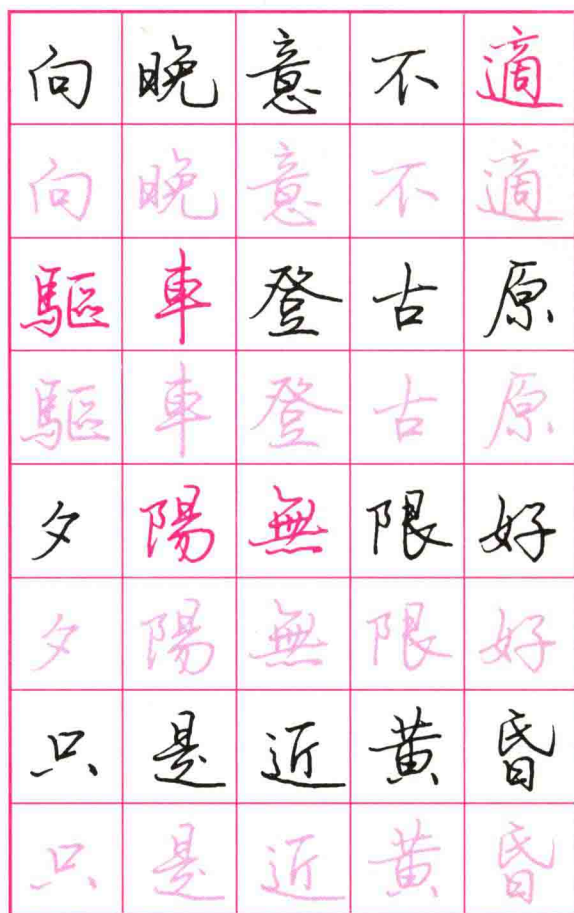 向晚意不適
向晚意不適
驅車登古原
驅車登古原
夕陽無限好
夕陽無限好
只是近黄昏
只是近黄昏